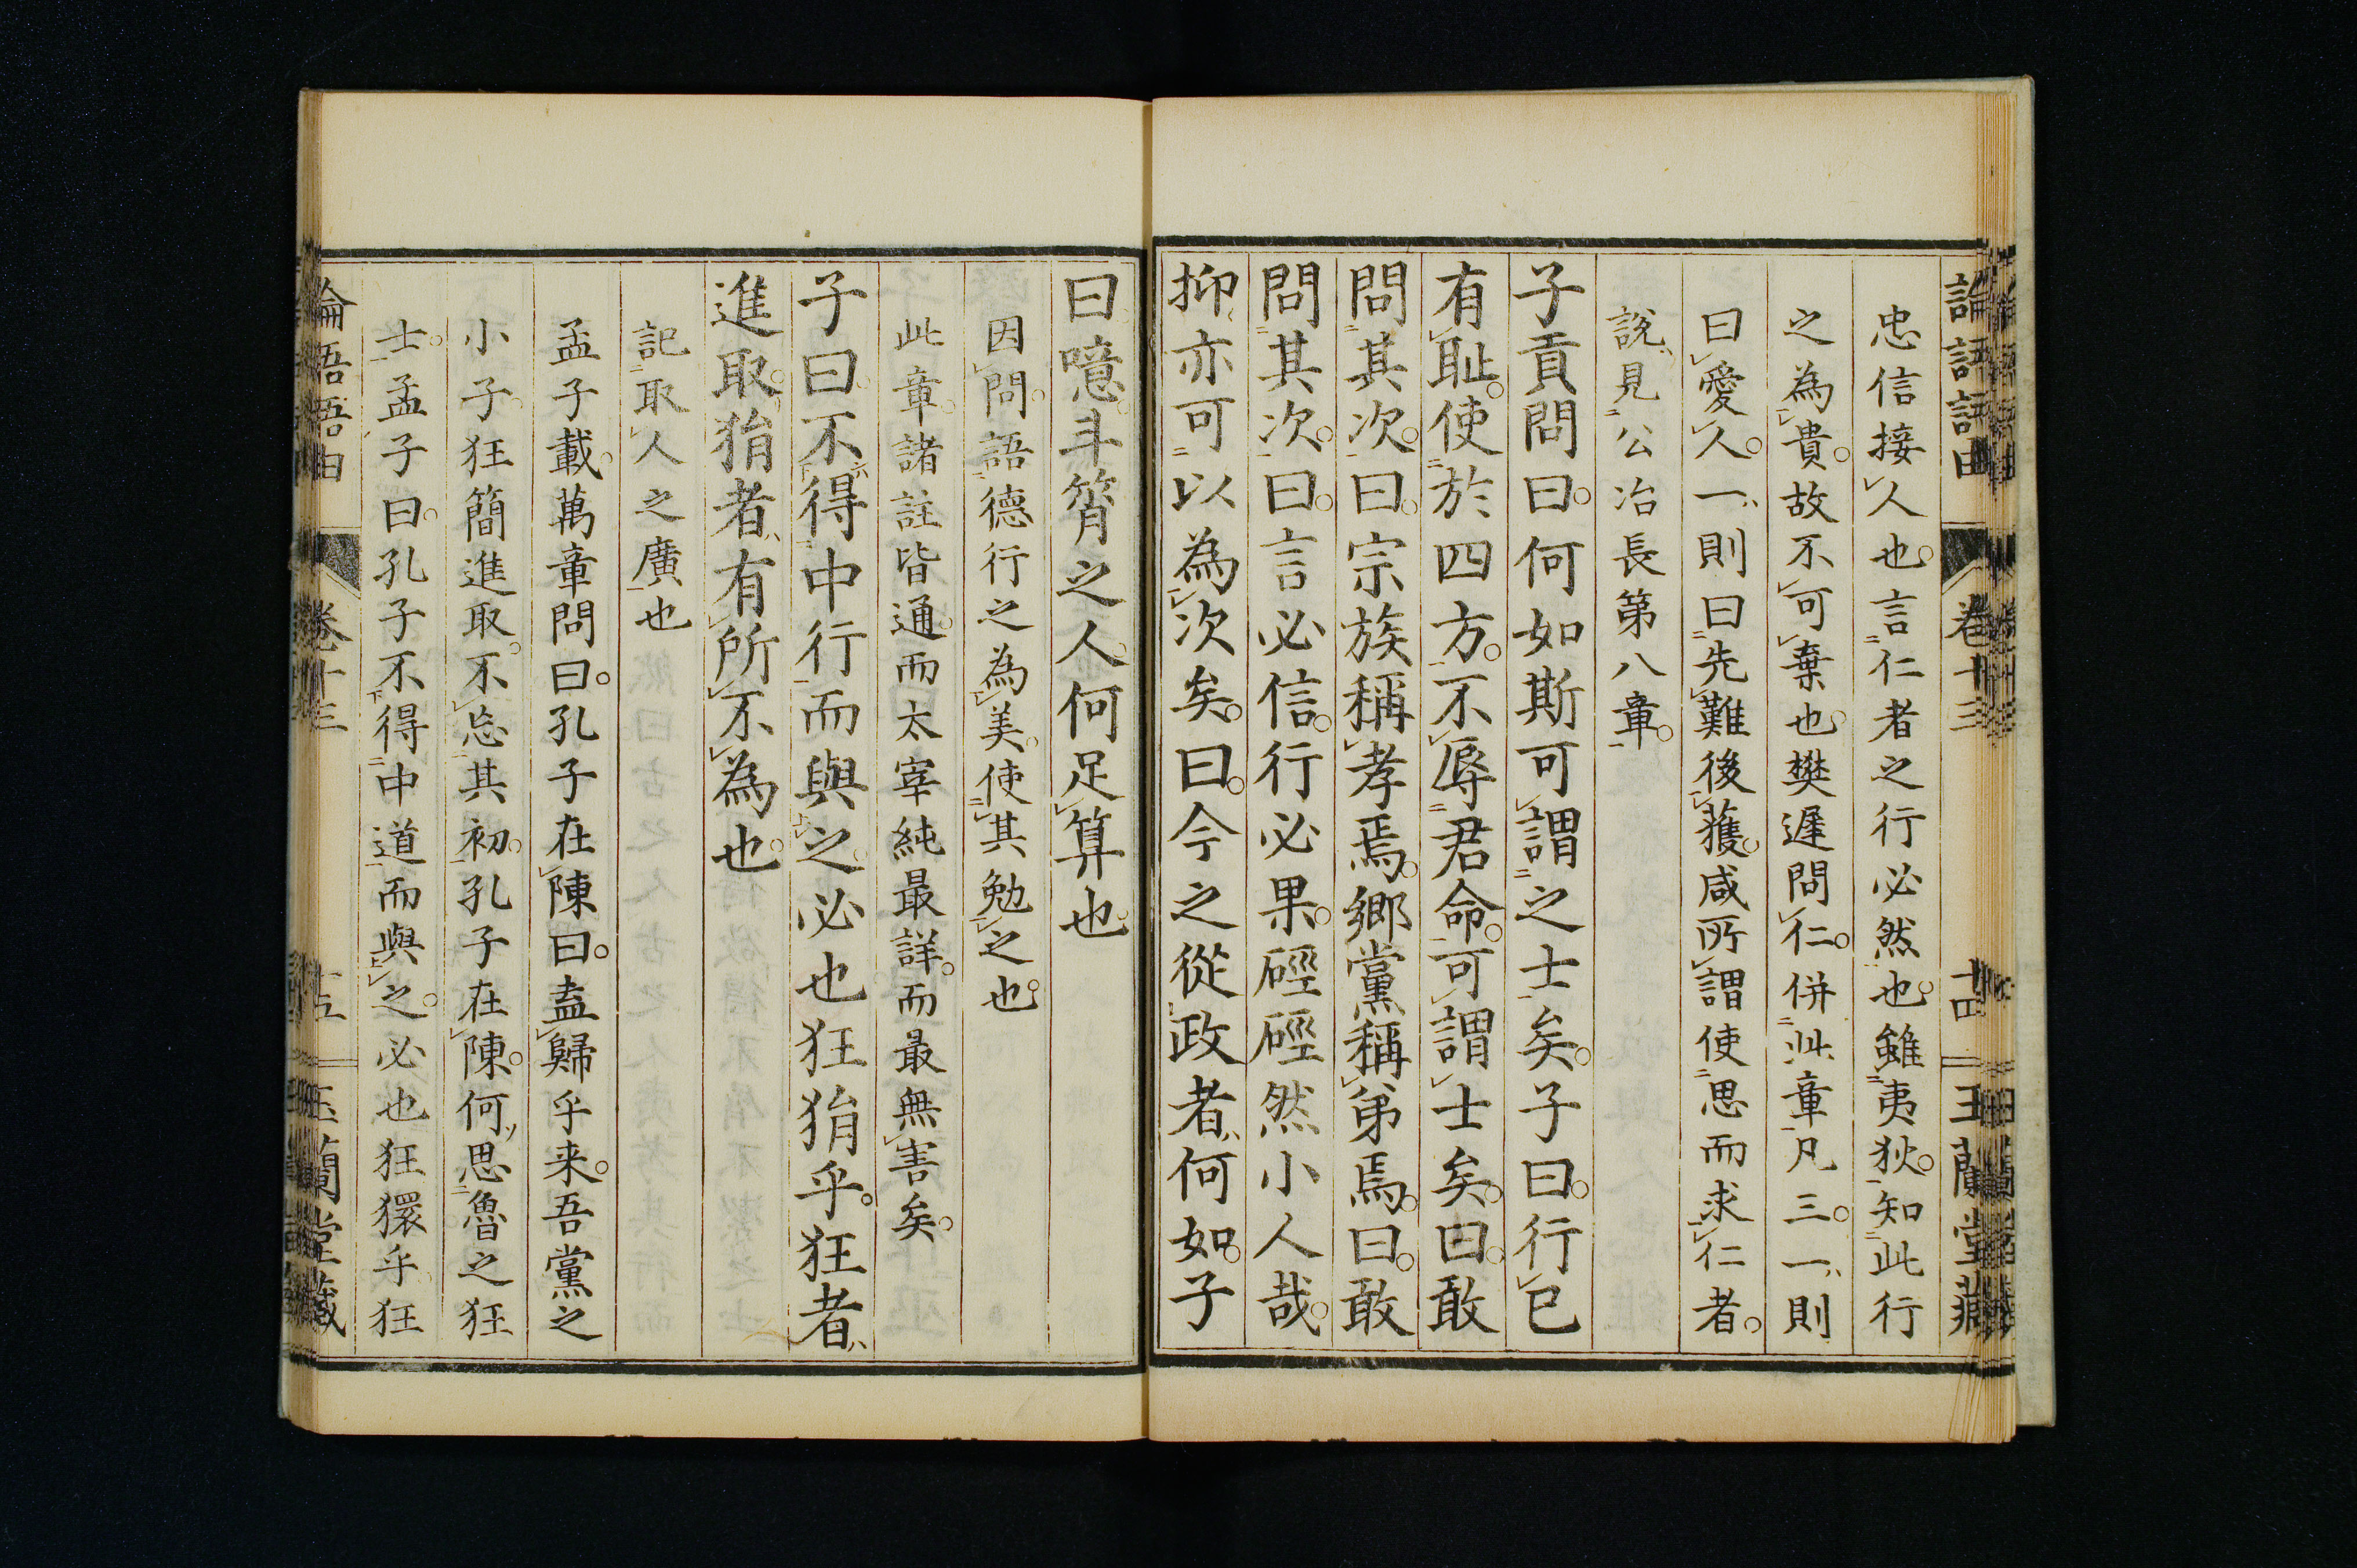 論語語由 卷十三 十四 玉蘭堂藏
忠信接人也。言仁者之行必然也。雖夷狄。知此行
之為貴。故不可棄也。樊遲問仁。併此章凡三。一則
曰愛人。一則曰先難後獲。咸所謂使思而求仁者。
說見公冶長第八章。
子貢問曰。何如斯可謂之士矣。子曰。行已
有耻。使於四方。不辱君命。可謂士矣。曰。敢
問其次。曰。宗族稱孝焉。鄉黨稱弟焉。曰。敢
問其次。曰。言必信。行必果。硜硜然小人哉。
抑亦可以為次矣。曰。今之從政者何如。子
曰。噫。斗筲之人。何足算也。
因問。語德行之為美。使其勉之也。
此章。諸註皆通。而太宰純最詳。而最無害矣。
子曰。不得中行而與之。必也狂狷乎。狂者
進取。狷者有所不為也。
記取人之廣也
孟子載。萬章問曰。孔子在陳曰。盍歸乎来。吾黨之
小子。狂簡進取。不忘其初。孔子在陳。何思魯之狂
士。孟子曰。孔子不得中道而與之。必也狂獧乎。狂
卷十三 玉蘭堂藏